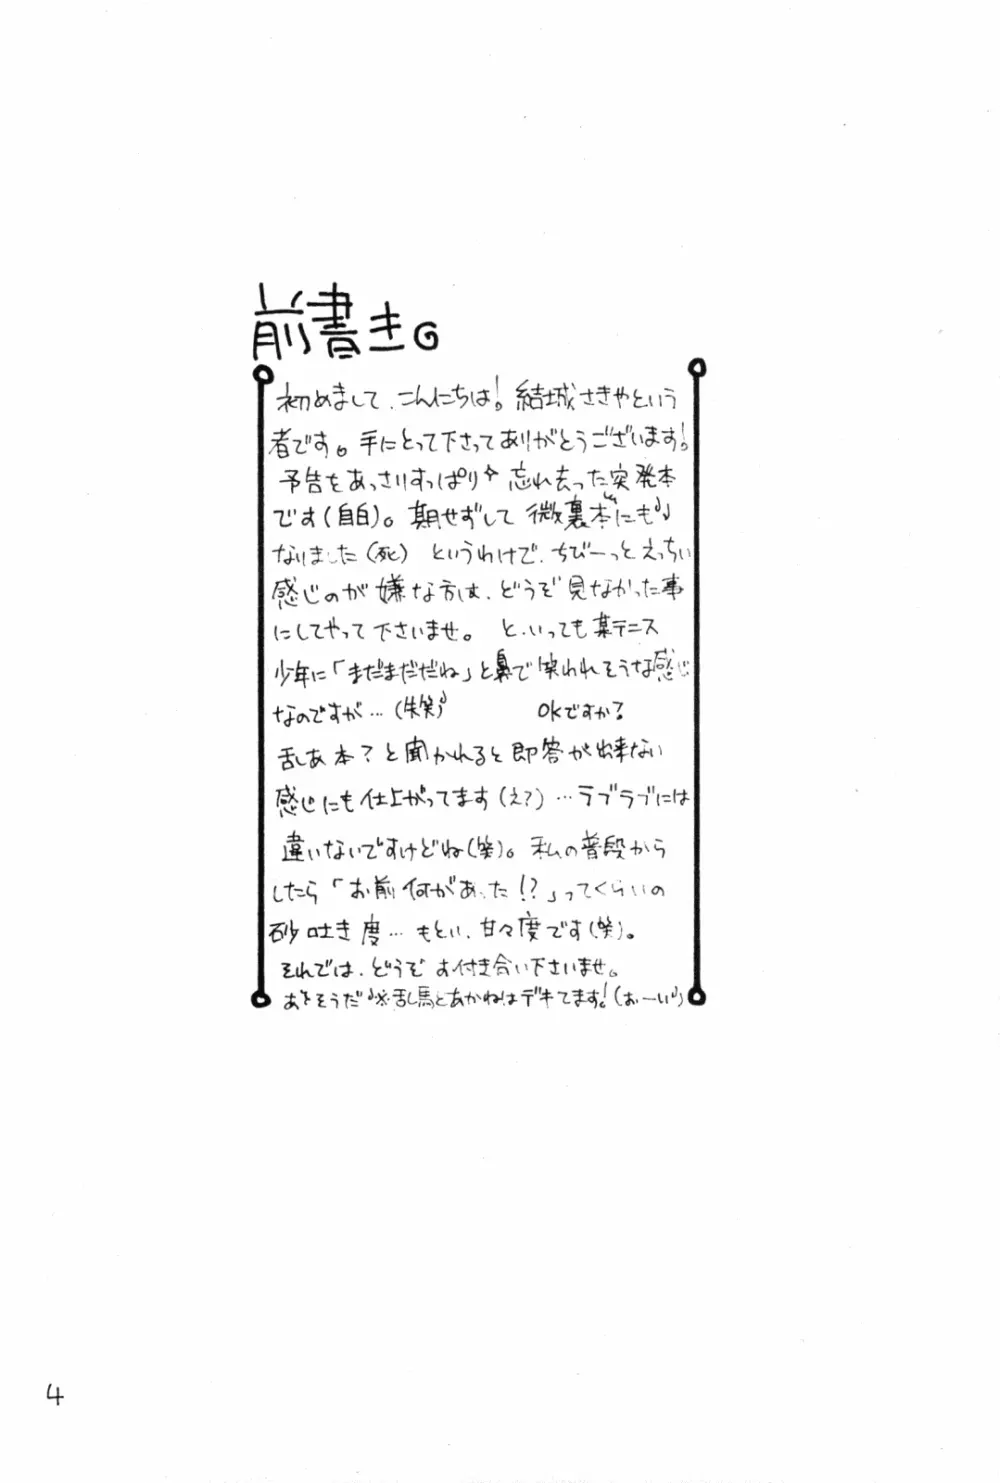 前書き。
初めまして、こんにちは！結城さきやという
者です。手にとって下さってありがとうございます！
予告をあっさりすっぱり✧忘れ去った突発本
です(自白)。期せずして微裏本にも♪
なりました(死) というわけで、ちびーっとえっちぃ
感じのが嫌な方は、どうぞ見なかった事
にしてやって下さいませ。 と、いっても某テニス
少年に「まだまだだね」と鼻で笑われそうな感じ
なのですが…(失笑) OKですか？
乱あ本？と聞かれると即答が出来ない
感じにも仕上がってます(え？)…ラブラブには
違いないですけどね(笑)。私の普段から
したら「お前何があった！？」ってくらいの
砂吐き度…もとい、甘々度です(笑)。
それでは、どうぞお付き合い下さいませ。
あとそうだ♪※乱馬とあかねはデキてます！(おーい)
4